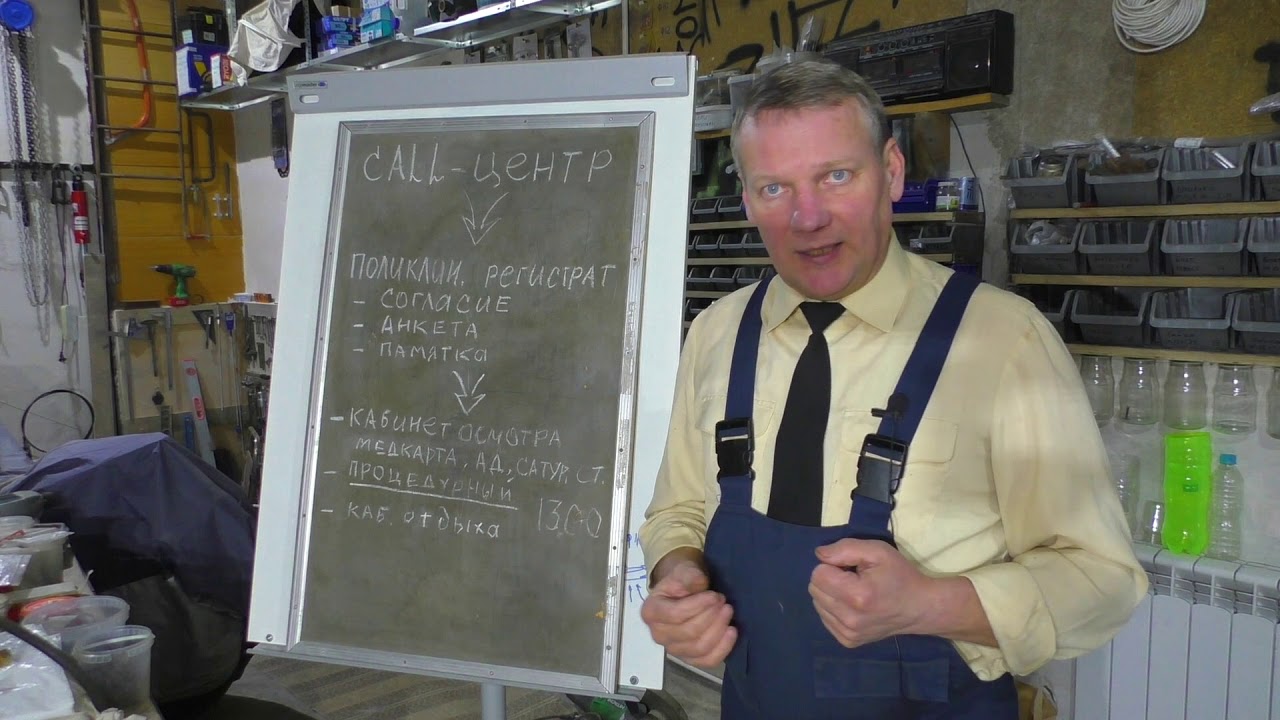 CALL-ЦЕНТР
ПОЛИКЛИН. РЕГИСТРАТ
- СОГЛАСИЕ
- АНКЕТА
- ПАМЯТКА
- КАБИНЕТ ОСМОТРА
МЕДКАРТА, АД, САТУР, СТ.
- ПРОЦЕДУРНЫЙ
- КАБ. ОТДЫХА 13.00